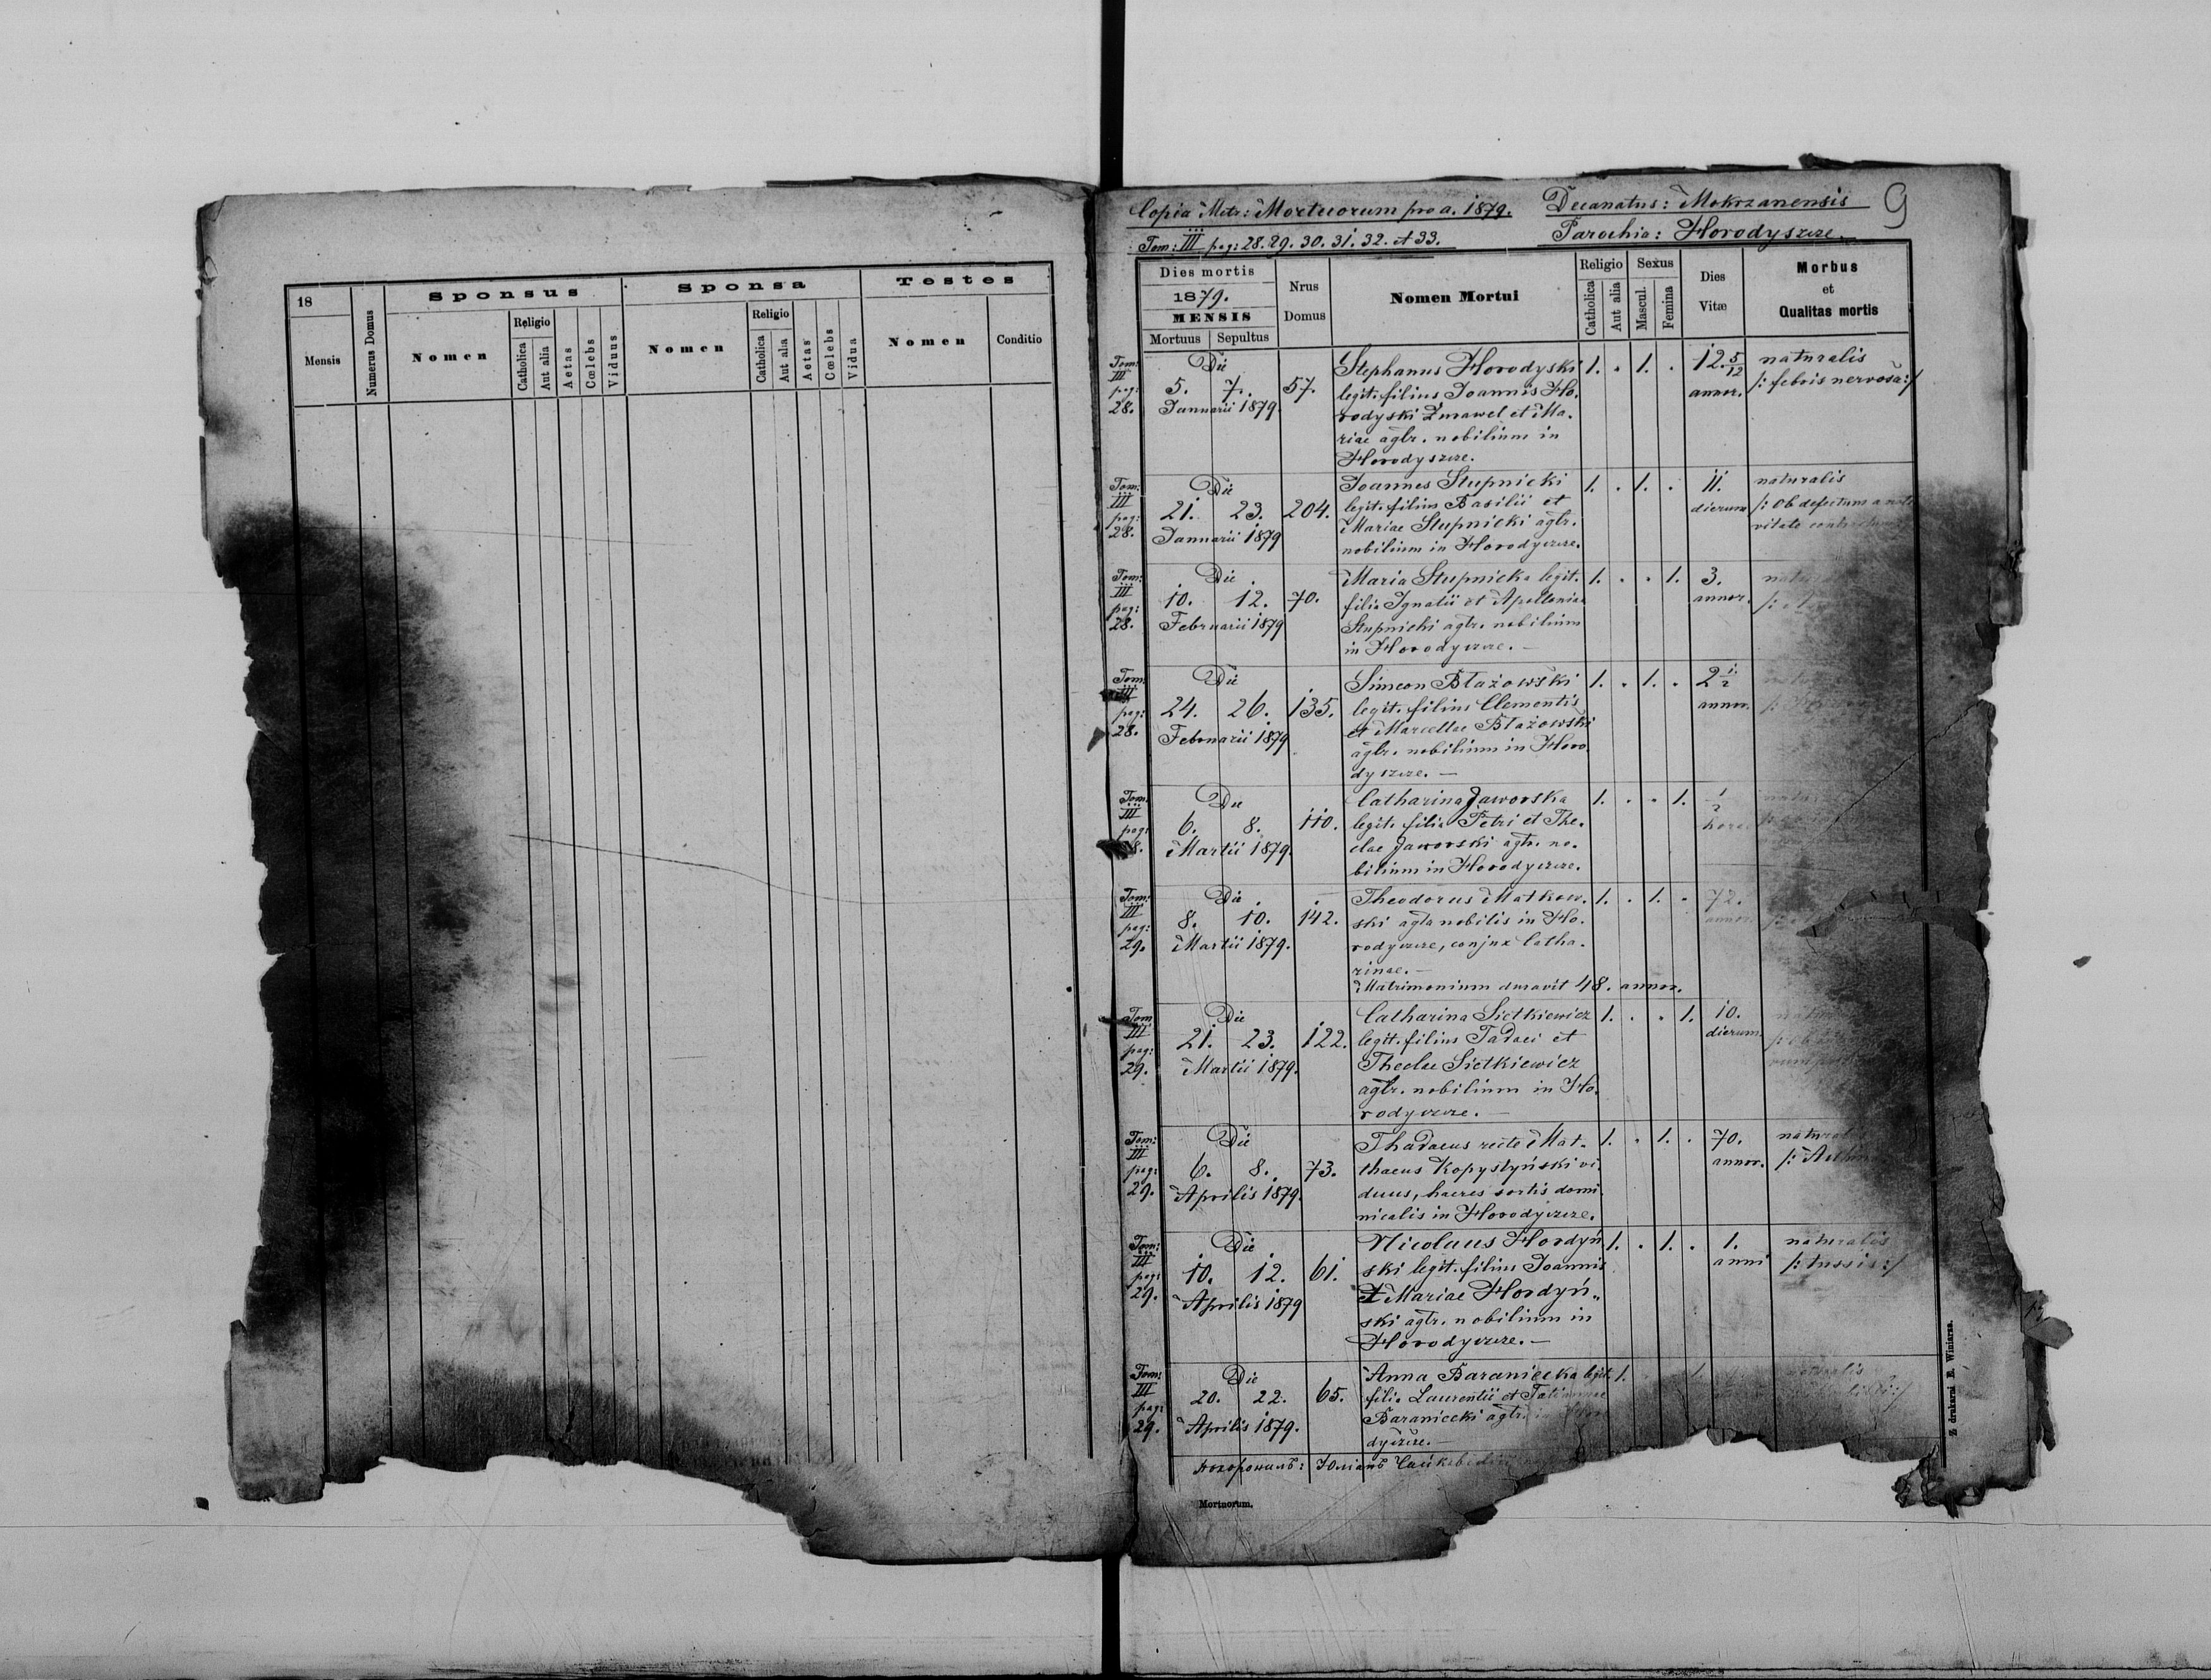 18
Mensis
Numerus Domus
Sponsus
Nomen
Religio
Catholica
Aut alia
Aetas
Cœlebs
Viduus
Sponsa
Nomen
Religio
Catholica
Aut alia
Aetas
Cœlebs
Vidua
Testes
Nomen
Conditio
Copia Metr: Mortuorum pro a. 1879.
Tom: III pag: 28. 29. 30. 31. 32. et 33.
Decanatus: Mokrzanensis
Parochia: Horodyszcze.
9
Dies mortis
1879.
MENSIS
Mortuus Sepultus
Nrus
Domus
Nomen Mortui
Religio
Catholica
Aut alia
Sexus
Mascul.
Femina
Dies
Vitæ
Morbus
et
Qualitas mortis
Tom: Die Stephanus Horodyski 1. . 1. . 12. 5/12 naturalis
III 5. 7. 57. legit. filius Joannis Ho. annor. /: febris nervosa :/
pag: Januarii 1879. rodyski Żurawel et Ma.
28. riae agtr. nobilium in
Horodyszcze.
Tom: Die Joannes Stupnicki 1. . 1. . 11. naturalis
III 21. 23. 204. legit. filius Basilii et dierum /: ob defectum a
pag: Januarii 1879 Mariae Stupnicki agtr.
28. nobilium in Horodyszcze.
Tom: Die Maria Stupnicka legit. 1. . . 1. 3.
III 10. 12. 70. filia Ignatii et Apolloniae annor.
pag: Februarii 1879 Stupnicki agtr. nobilium
28. in Horodyszcze. —
Tom: Die Simeon Błażowski 1. . 1. . 2 1/2
III 24. 26. 135. legit. filius Clementis annor.
pag: Februarii 1879 et Marcellae Błażowski
28. agtr. nobilium in Horo
dyszcze. —
Tom: Die Catharina Jaworska 1. . . 1. 1/2
III 6. 8. 110. legit. filia Petri et The.
pag: Martii 1879. clae Jaworski agtr. no.
bilium in Horodyszcze.
Tom: Die Theodorus Matkow. 1. . 1. . 72.
III 8. 10. 142. ski agta nobilis in Ho.
pag: Martii 1879. rodyszcze, conjux Catha.
29. rinae. —
Matrimonium duravit 48. annor.
Tom Die Catharina Sietkiewicz 1. . . 1. 10.
III 21. 23. 122. legit. filius Tadaei et dierum
pag: Martii 1879. Theclae Sietkiewicz
29. agtr. nobilium in Ho.
rodyszcze. —
Tom: Die Thadaeus recte Mat. 1. . 1. . 70.
III 6. 8. 73. thaeus Kopystyński vi. annor.
pag: Aprilis 1879. duus, haeres sortis domi.
29. nicalis in Horodyszcze.
Tom: Die Nicolaus Hordyń 1. . 1. . 1. naturalis
III 10. 12. 61. ski legit. filius Joannis anni /: tussis :/
pag: Aprilis 1879 et Mariae Hordyń„
29. ski agtr. nobilium in
Horodyszcze. —
Tom: Die Anna Baraniecka legit. 1.
III 20. 22. 65. filia Laurentii et Tatiannae
pag: Aprilis 1879. Baraniecki agtr.
29. dyszcze. —
похоронилъ: Юліанъ
Mortuorum.
Z drukarni E. Winiarza.